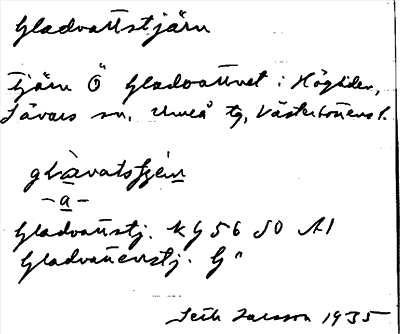 Gladvattstjärn
Tjärn Ö Gladvattnet i Högliden,
Sävars sn, Umeå tg, Västerbottens l.
glàvatsʃɟen
-a-
Gladvattstj. kg 56 SO A1
Gladvattenstj. G"
Seth Larsson 1935